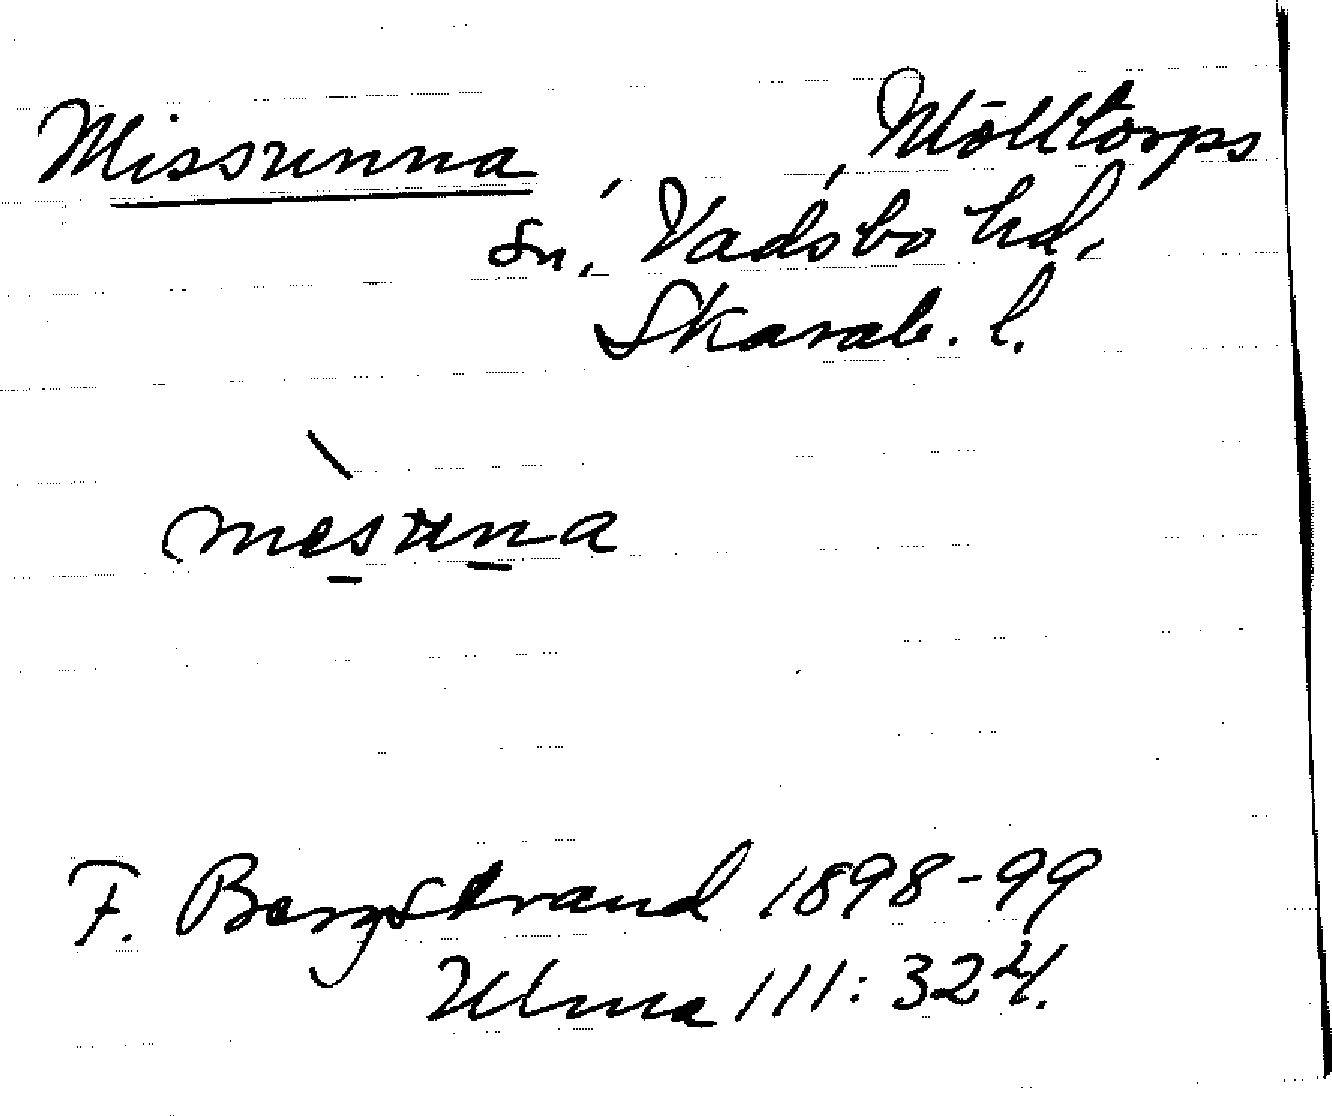 Missunna, Mölltorps
sn., Vadsbo hd,
Skarab. l.
mesuna
F. Bergstrand 1898-99
Ulma 111: 324.